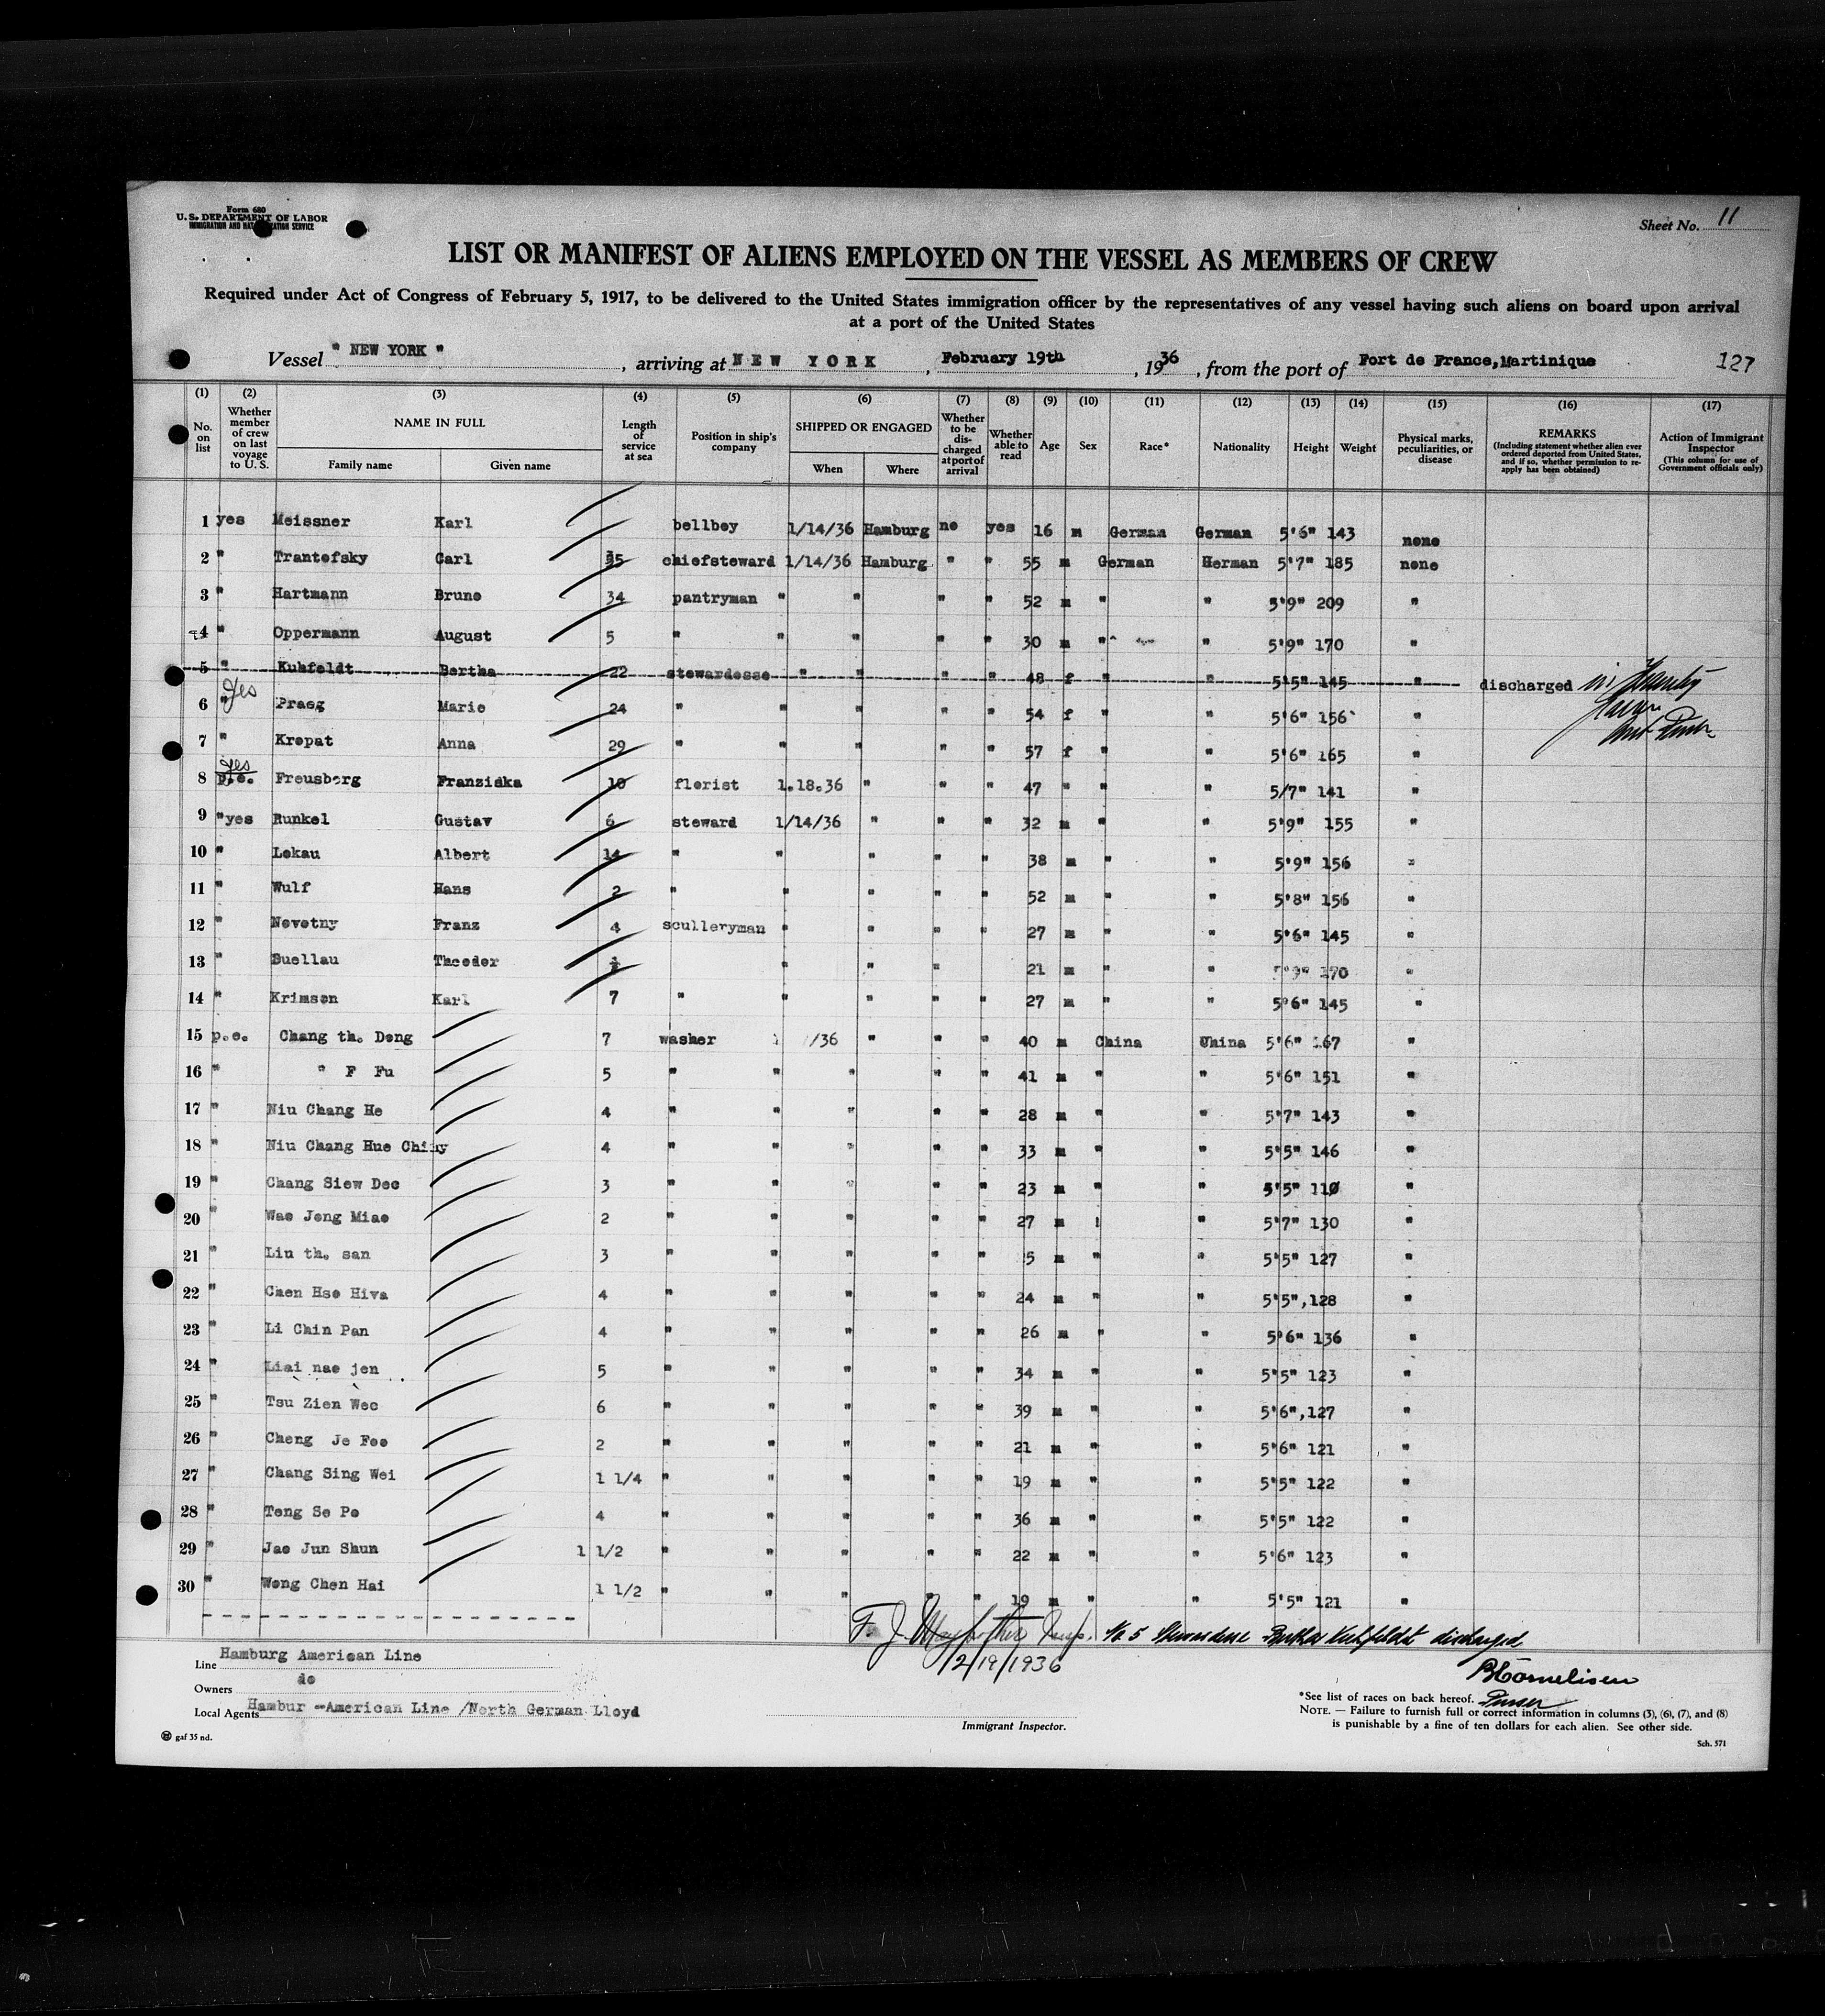 Form 680
U. S. DEPARTMENT OF LABOR
IMMIGRATION AND NATURALIZATION SERVICE
Sheet No. 11
LIST OR MANIFEST OF ALIENS EMPLOYED ON THE VESSEL AS MEMBERS OF CREW
Required under Act of Congress of February 5, 1917, to be delivered to the United States immigration officer by the representatives of any vessel having such aliens on board upon arrival
at a port of the United States
Vessel " NEW YORK " , arriving at NEW YORK , February 19th , 1936 , from the port of Fort de France,Martinique 127
(1) (2) (3) (4) (5) (6) (7) (8) (9) (10) (11) (12) (13) (14) (15) (16) (17)
No. on list
Whether member of crew on last voyage to U. S.
NAME IN FULL
Family name Given name
Length of service at sea
Position in ship's company
SHIPPED OR ENGAGED
When Where
Whether to be discharged at port of arrival
Whether able to read
Age
Sex
Race*
Nationality
Height
Weight
Physical marks, peculiarities, or disease
REMARKS
(Including statement whether alien ever ordered deported from United States, and if so, whether permission to reapply has been obtained)
Action of Immigrant Inspector
(This column for use of Government officials only)
1 yes Meissner Karl bellboy 1/14/36 Hamburg no yes 16 m German German 5'6" 143 none
2 " Trantofsky Carl 35 chiefsteward 1/14/36 Hamburg " " 55 m German Herman 5'7" 185 none
3 " Hartmann Bruno 34 pantryman " " " " 52 m " " 5'9" 209 "
4 " Oppermann August 5 " " " " " 30 m " " 5'9" 170 "
5 " Kuhfeldt Bertha 22 stewardesse " " " " 48 f " " 5'5" 145 " discharged in
6 " Yes Praeg Marie 24 " " " " " 54 f " " 5'6" 156 "
7 " Krepat Anna 29 " " " " " 57 f " " 5'6" 165 "
8 p.e. yes Freusberg Franziska 10 florist 1.18.36 " " " 47 " " " 5/7" 141 "
9 "yes Runkel Gustav 6 steward 1/14/36 " " " 32 m " " 5'9" 155 "
10 " Lokau Albert 14 " " " " " 38 m " " 5'9" 156 "
11 " Wulf Hans 2 " " " " " 52 m " " 5'8" 156 "
12 " Novotny Franz 4 sculleryman " " " " 27 m " " 5'6" 145 "
13 " Suellau Theodor " " " 21 m " 5'9" 170 "
14 " Krimson Karl 7 " " " " " 27 m " " 5'6" 145 "
15 p.e. Chang th. Dong 7 washer /36 " " " 40 m China China 5'6" 167 "
16 " " F Fu 5 " " " " " 41 m " " 5'6" 151 "
17 " Niu Chang He 4 " " " " " 28 m " " 5'7" 143 "
18 " Niu Chang Hue 4 " " " " " 33 m " " 5'5" 146 "
19 " Chang Siew Dec 3 " " " " " 23 m " " 5'5" 110 "
20 " Wao Jong Miao 2 " " " " " 27 m " 5'7" 130 "
21 " Liu th. san 3 " " " " " 5 m " " 5'5" 127 "
22 " Chen Hse Hiva 4 " " " " " 24 m " " 5'5",128 "
23 " Li Chin Pan 4 " " " " " 26 m " " 5'6" 136 "
24 " Liai nae jen 5 " " " " " 34 m " " 5'5" 123 "
25 " Tsu Zien Wec 6 " " " " " 39 m " " 5'6",127 "
26 " Cheng Je Foo 2 " " " " " 21 m " " 5'6" 121 "
27 " Chang Sing Wei 1 1/4 " " " " " 19 m " " 5'5" 122 "
28 " Teng Se Po 4 " " " " " 36 m " " 5'5" 122 "
29 " Jao Jun Shun 1 1/2 " " " " " 22 m " " 5'6" 123 "
30 " Wong Chen Hai 1 1/2 " " " " " 19 m " " 5'5" 121 "
F. J. Insp. No 5 Stewardesse Bertha Kuhfeldt discharged
2/19/1936
BCornelisen
Purser
Line Hamburg American Line
Owners do
Local Agents Hambur -American Line /North German Lloyd
Immigrant Inspector.
*See list of races on back hereof.
NOTE. — Failure to furnish full or correct information in columns (3), (6), (7), and (8)
is punishable by a fine of ten dollars for each alien. See other side.
gaf 35 nd.
Sch. 571